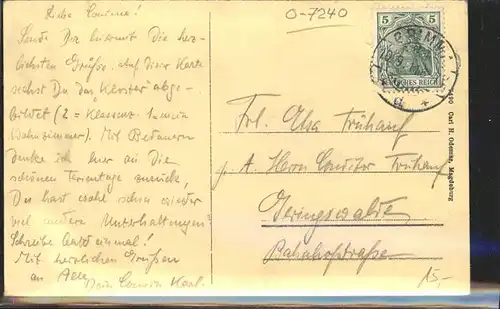 Liebe Cousine!
Sende Dir hiermit die herz-
lichsten Grüße. Auf dieser Karte
siehst Du das Kloster abge-
bildet (2 = Klassenz. 1 = mein
Wohnzimmer). Mit Bedauern
denke ich hier an die
schönen Ferientage zurück,
Du hast schon wieder
viel andere Unterhaltungen
Schreibe bald einmal!
Mit herzlichen Grüßen
an Alle
Dein Cousin Karl.
O-7240
5 5
DEUTSCHES REICH
GRIMMA
Frl. Elsa Frühauf
p. A. Herrn Conditor Frühauf
Geringswalde
Bahnhofstraße
15,-
Carl H. Odemar, Magdeburg